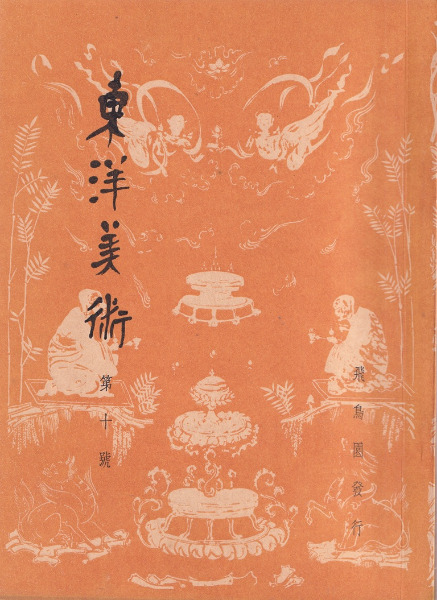 東洋美術
第十號
飛鳥園發行